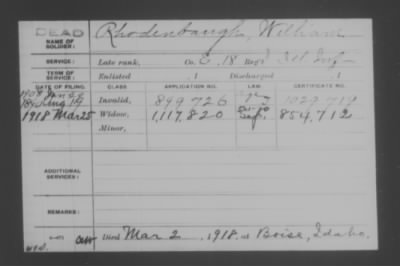 DEAD
NAME OF SOLDIER: Rhodenbaugh, William
SERVICE: Late rank, Co. E, 18 Reg't Inf
TERM OF SERVICE: Enlisted , 1 Discharged , 1
DATE OF FILING. CLASS APPLICATION NO. LAW. CERTIFICATE NO.
Aug 19 Invalid, 899726 1029719
1918 Mar 25 Widow, 1,117,820 Sep. 854,712
Minor,
ADDITIONAL SERVICES:
REMARKS:
Died Mar 2, 1918, at Boise, Idaho.